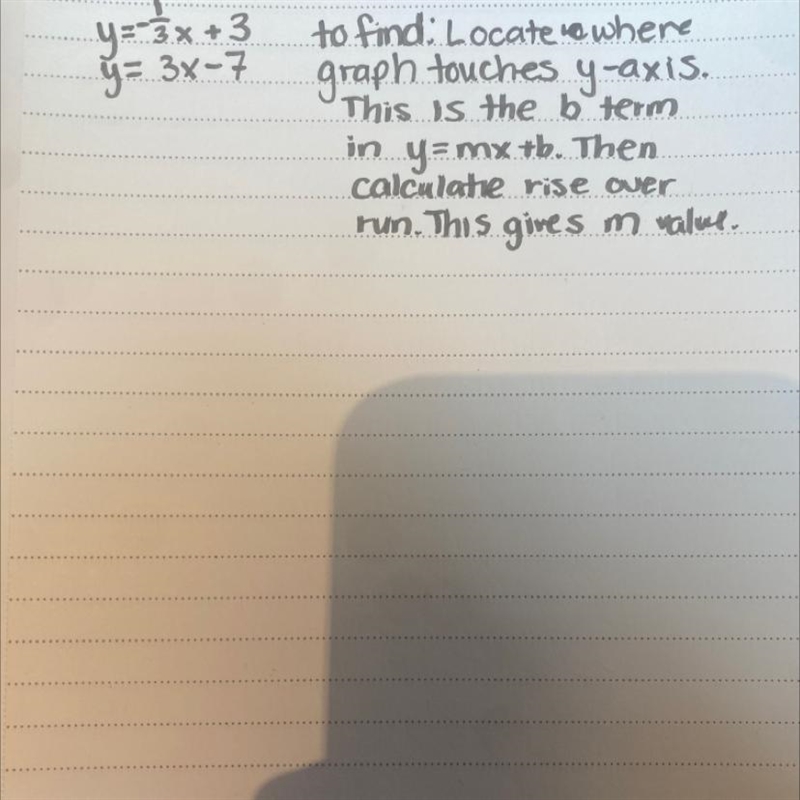 y=-1/3x+3 to find: Locate where
y= 3x-7 graph touches y-axis.
This is the b term
in y=mx+b. Then
calculate rise over
run. This gives m value.